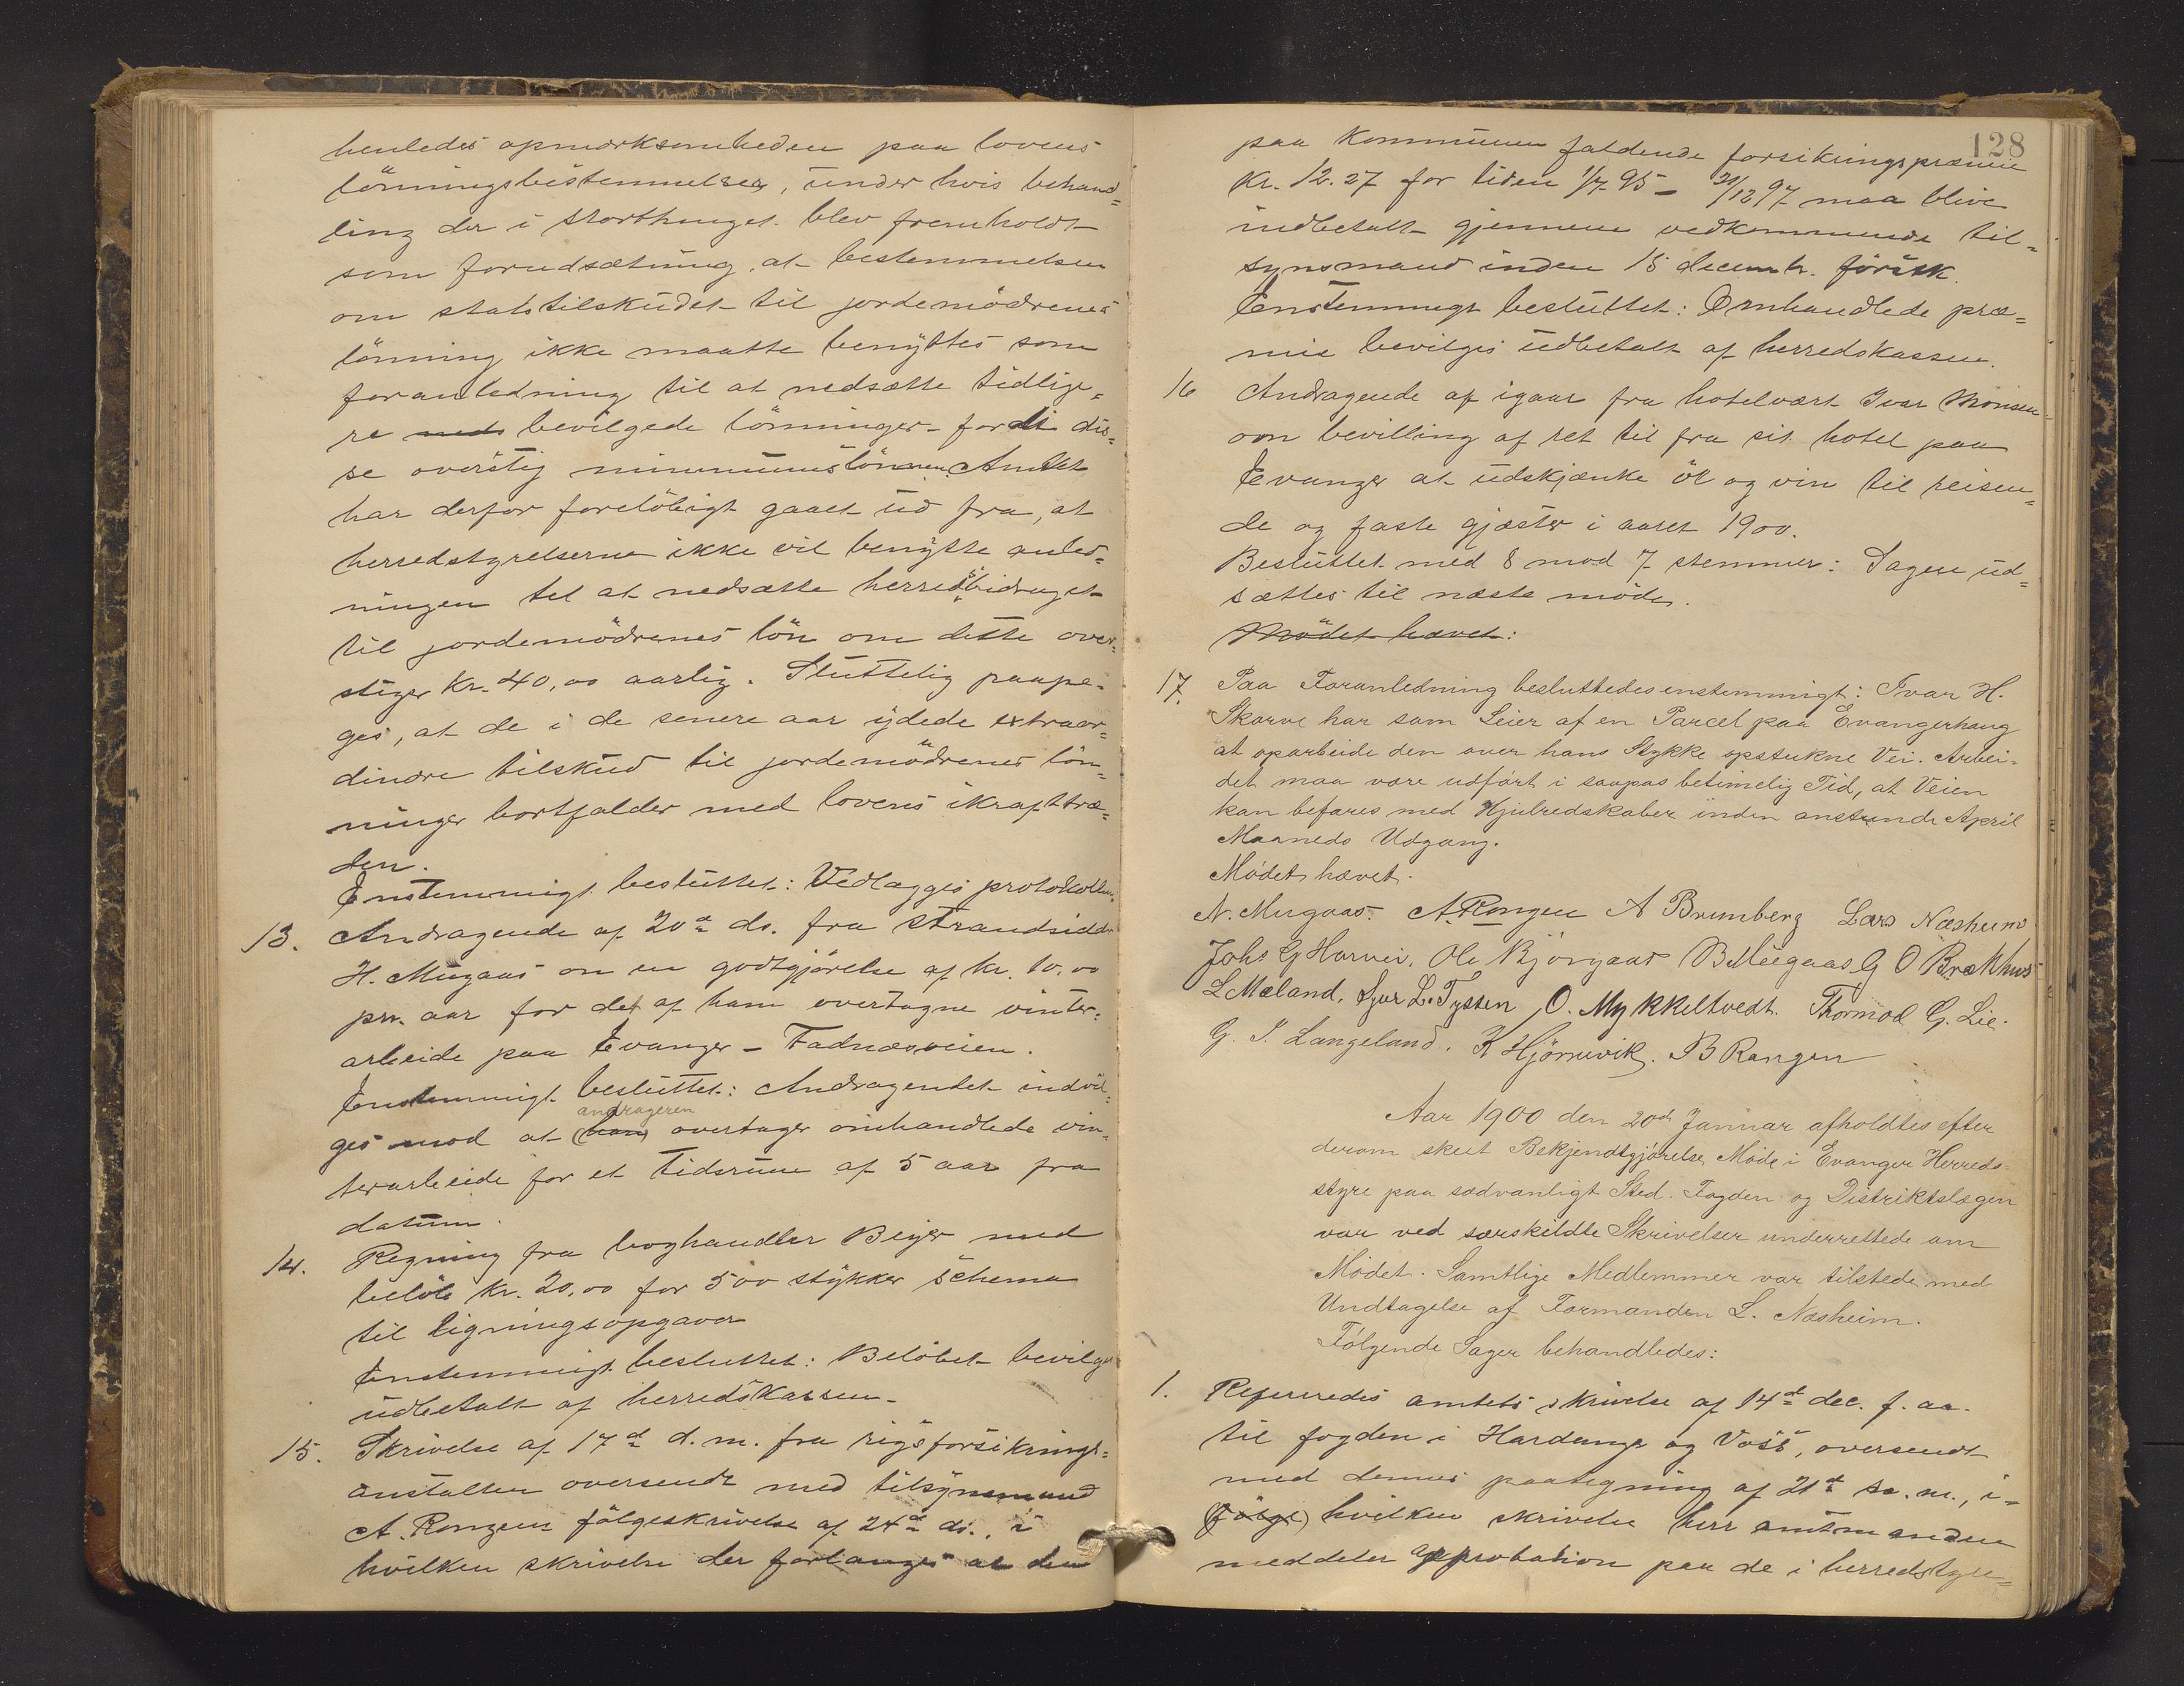 henledes opmærksomheden paa lovens
lönningsbestemmelser, under hvis behand=
ling der i storthinget blev fremholdt
som forudsætning, at bestemmelsen
om statstilskudet til jordemödrenes
lönning ikke maatte benyttes som
foranledning til at nedsætte tidlige=
re neds bevilgede lönninger fordi dis=
se oversteg minimumslönnen. Amtet
har derfor foreløbigt gaaet ud fra, at
herredstyrelserne ikke vil benytte anled=
ningen til at nedsætte herredsbidraget
til jordemödrenes lön om dette over=
stiger Kr. 40,00 aarlig. Sluttelig paape=
ges, at de i de senere aar ydede extraor=
dinære tilskud til jordemödrenes lön=
ninger bortfalder med lovens ikrafttræ=
den.
Enstemmigt besluttet: Vedlægges protokollen.
13. Andragende af 20de ds. fra strandsidder
H. Mugaas om en godtgjörelse af kr. 10.00
pr. aar for det af ham overtagne vinter=
arbeide paa Evanger - Fadnæsveien.
Enstemmigt besluttet: Andragendet indvil=
andrageren
ges mod at (han) overtager omhandlede vin=
terarbeide for et tidsrum af 5 aar fra
datum.
14. Regning fra boghandler Beijer med
belöb kr. 20,00 for 500 stykker schema
til ligningsopgaver
Enstemmigt besluttet: Belöbet bevilges
udbetalt af herredskassen.
15. Skrivelse af 17de d.m. fra rigsforsikrings=
anstalten oversendt med tilsynsmand
A. Rongens fölgeskrivelse af 24de ds., i
hvilken skrivelse der forlanges at den
128
paa kommunen faldende forsikringspræmie
Kr. 12.27 for tiden 1/7 95 - 31/12 97 maa blive
indbetalt gjennem vedkommende til=
synsmand inden 15 decembr. förstk.
Enstemmigt besluttet: Omhandlede præ=
mie bevilges udbetalt af herredskassen.
16 Andragende af igaar fra hotelvært Ivar Monsen
om bevilling af ret til fra sit hotel paa
Evanger at udskjænke öl og vin til reisen=
de og faste gjæster i aaret 1900.
Besluttet med 8 mod 7 stemmer: Sagen ud=
sættes til næste möde.
Mödet hævet:
17. Paa Foranledning besluttedes enstemmigt: Ivar H.
Skorve har som Leier af en Parcel paa Evangerhaug
at oparbeide den over hans Stykke opstukne Vei. Arbei=
det maa være udført i saapas betimelig Tid, at Veien
kan befares med Hjulredskaber inden anstundende April
Maaneds Udgang.
Mødet hævet.
N. Mugaas. A. Rongen A Brunberg Lars Næsheim
Johs G Horvei. Ole Bjørgaas B. Mugaas G O Brækhus
L Mæland. Sjur L. Tyssen O. Mykkeltvedt. Thormod G. Lie.
G. I. Langeland. K Hjörnevik. B Rongen
Aar 1900 den 20de Januar afholdtes efter
derom skeet Bekjendtgjørelse Møde i Evanger Herreds=
styre paa sædvanligt Sted. Fogden og Distriktslægen
var ved særskildte Skrivelser underrettede om
Mødet. Samtlige Medlemmer var tilstede med
Undtagelse af Formanden L. Næsheim.
Følgende Sager behandledes:
1. Refereredes amtets skrivelse af 14de dec. f. aa.
til fogden i Hardanger og Voss, oversendt
med dennes paategning af 21de s. m., i=
(fölge) hvilken skrivelse herr amtmanden
meddeler approbation paa de i herredstyre=